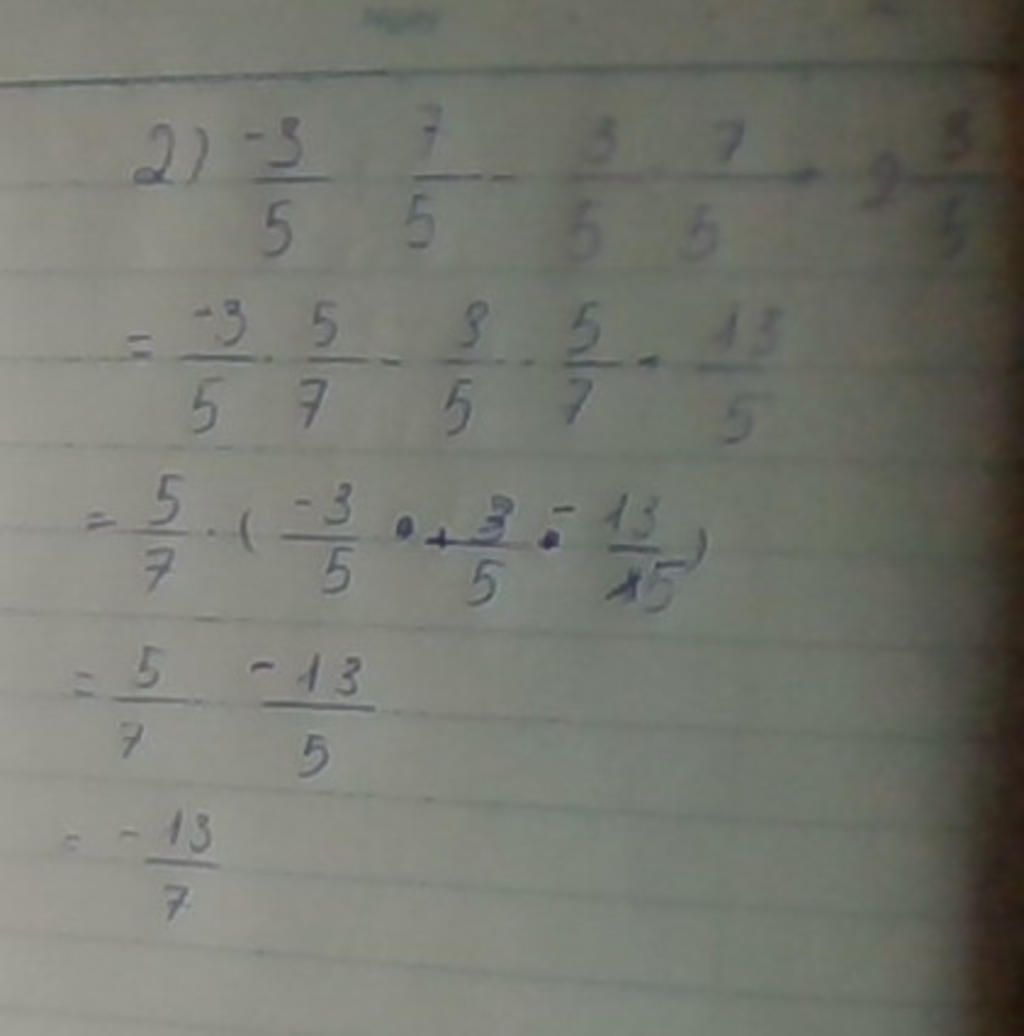 2) -3/5 7/5 - 3/5 7/5 - 2 3/5
= -3/5 · 5/7 - 3/5 · 5/7 - 13/5
= 5/7 · ( -3/5 + 3/5 - 13/15 )
= 5/7 -13/5
= - 13/7